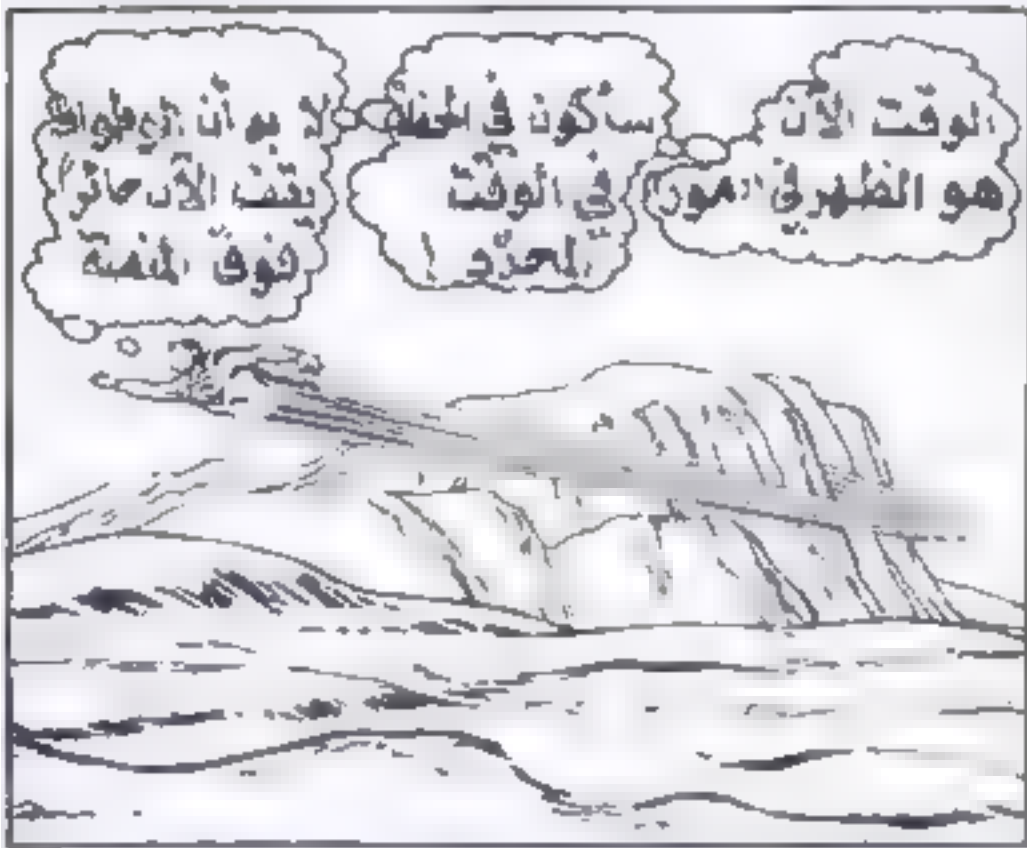 الوقت الآن
هو الظهر في
سأكون في الحفل
في الوقت
المحدد !
لا بد أن الوطواط
يقف الآن حائرا
فوق المنصة